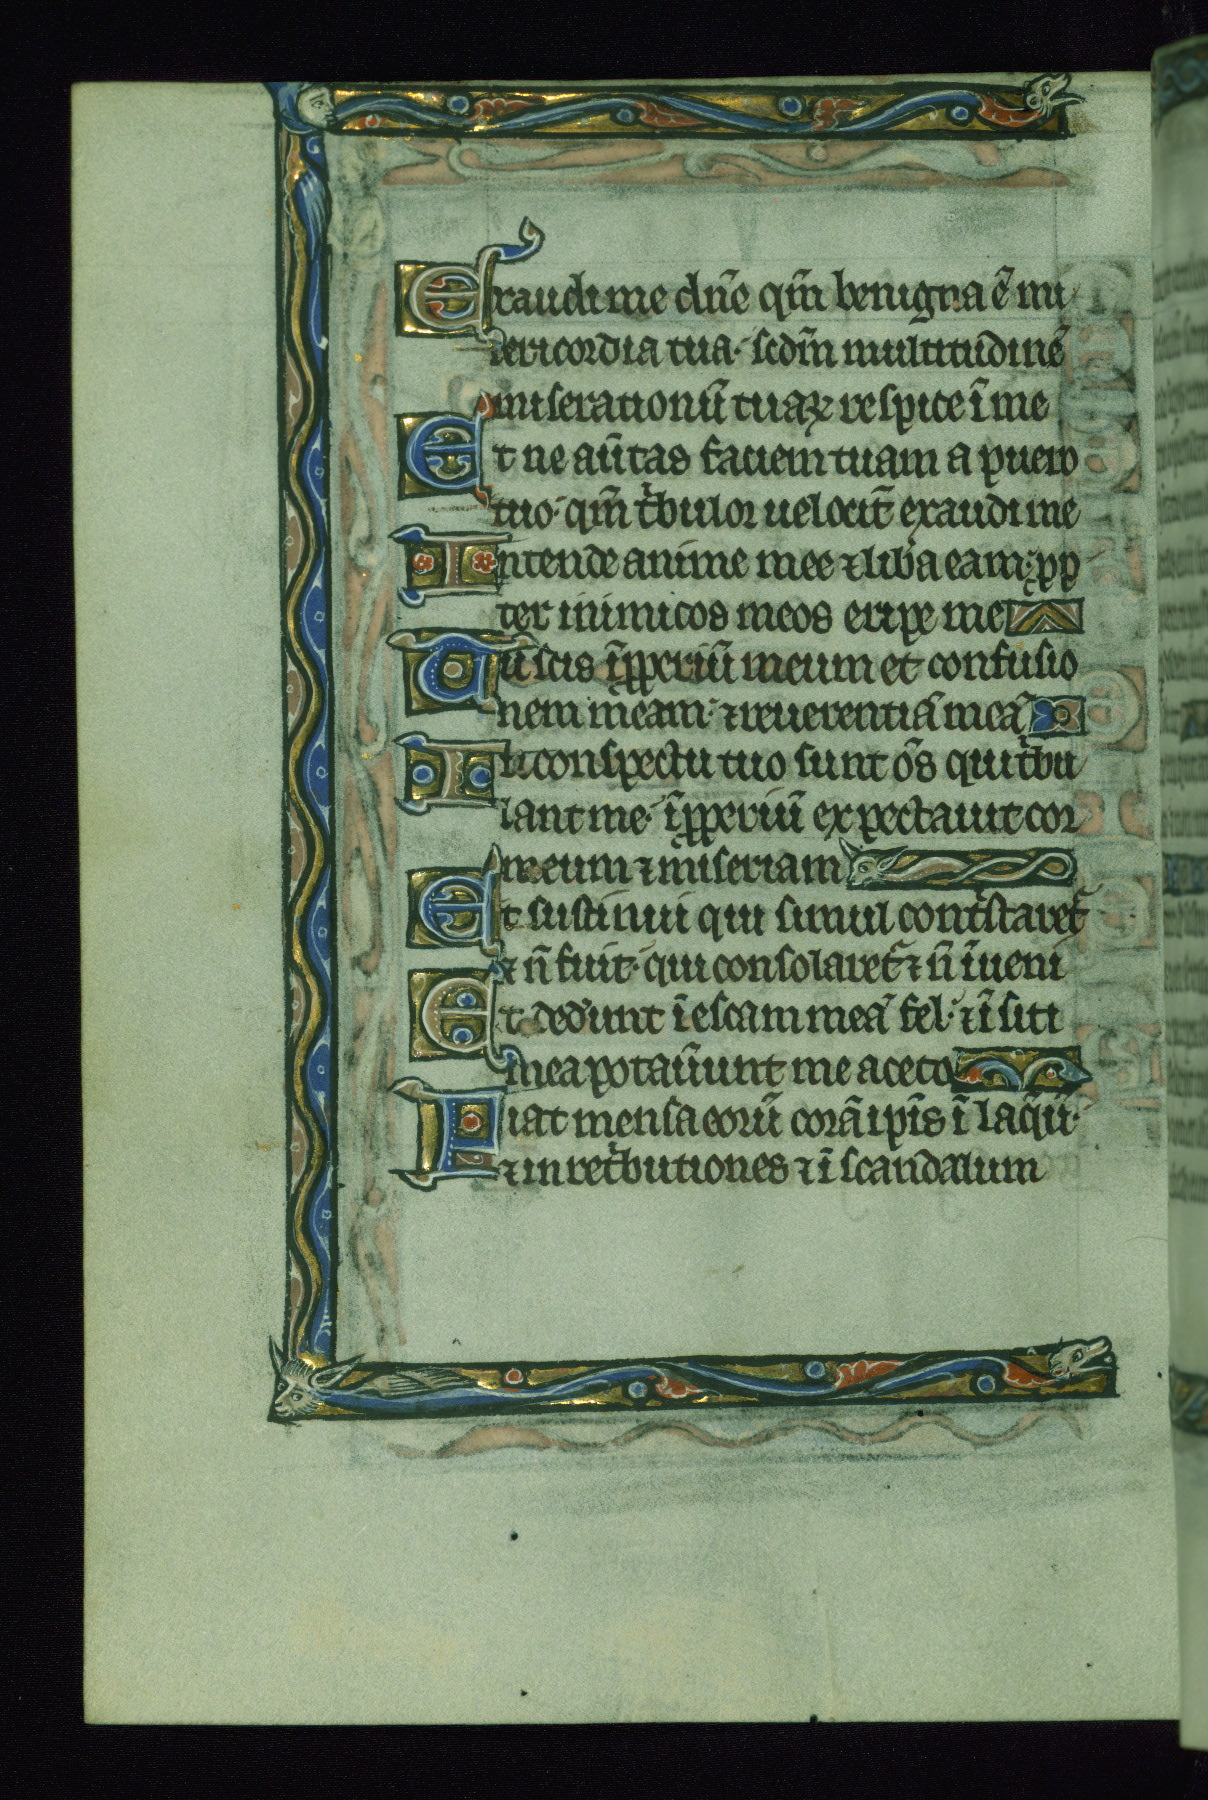 Exaudi me dn̄e qm̄ benigna ē mi
sericordia tua· scdm̄ multitudinē
miserationū tuaꝝ respice ī me
Et ne aūtas faciem tuam a puero
tuo· qm̄ tⁱbulor uelocit̄ exaudi me
Intende anime mee ⁊ lib̄a eam· ꝓp
ter inimicos meos eripe me
Tu scis īpꝑeriū meum et confusio
nem meam· ⁊ reuerentiā meā
In conspectu tuo sunt om̄s qui tⁱbu
lant me· īpꝑeriū expectauit cor
meum ⁊ miseriam
Et sustinui qui simul contⁱstaret᷑
⁊ n̄ fuit· qui consolaret᷑ ⁊ n̄ īueni
Et ded̄unt ī escam meā fel· ⁊ ī siti
mea potaūunt me aceto
Fiat mensa eorū corā ip̄is ī laq̄ū·
⁊ in retⁱbutiones ⁊ ī scandalum